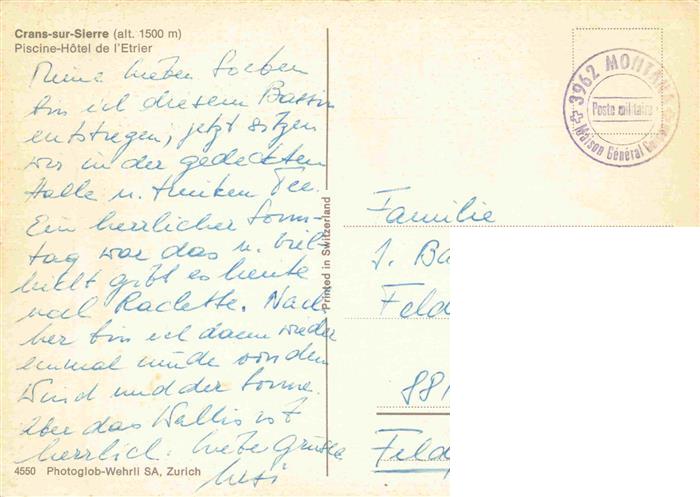 Crans-sur-Sierre (alt. 1500 m)
Piscine-Hôtel de l'Etrier
Meine Lieben Soeben
bin ich diesem Bassin
entstiegen, jetzt sitzen
wir in der gedeckten
Halle u. trinken Tee.
Ein herrlicher Sonn-
tag war das u. viel-
leicht gibt es heute
noch Raclette. Nach-
her bin ich dann wieder
einmal müde von dem
Wind und der Sonne.
Aber das Wallis ist
herrlich. Liebe Grüsse
4550 Photoglob-Wehrli SA, Zurich
Printed in Switzerland
3962 MONTANA
Poste militaire
Maison Général
Familie
J. Ba
Feld
881
Feld